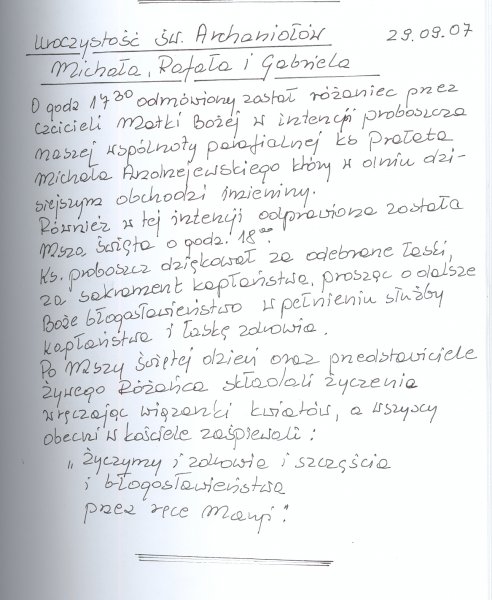 Uroczystość św. Archaniołów 29.09.07
Michała, Rafała i Gabriela
O godz 17³⁰ odmówiony został różaniec przez
czcicieli Matki Bożej w intencji proboszcza
naszej wspólnoty parafialnej ks Prałata
Michała Andrzejewskiego który w dniu dzi-
siejszym obchodzi imieniny.
Również w tej intencji odprawiona została
Msza Święta o godz. 18⁰⁰.
Ks. proboszcz dziękował za odebrane łaski,
za sakrament kapłaństwa, prosząc o dalsze
Boże błogosławieństwo w pełnieniu służby
kapłaństwa i łaskę zdrowia.
Po Mszy Świętej dzieci oraz przedstawiciele
Żywego Różańca składali życzenia
wręczając wiązanki kwiatów, a wszyscy
obecni w kościele zaśpiewali:
„Życzymy i zdrowia i szczęścia
i błogosławieństwa
przez ręce Maryi".